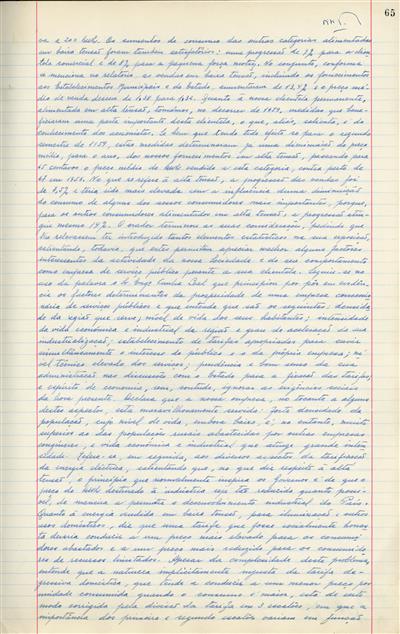 65
va a 200 kwh. Os aumentos de consumo das outras categorias alimentadas
em baixa tensão foram também satisfatórios: uma progressão de 7% para a clien-
tela comercial e de 8% para a pequena força motriz. No conjunto, conforme
a menciona no relatório, as vendas em baixa tensão, incluindo os fornecimentos
aos Estabelecimentos Municipais e do Estado, aumentaram de
dia de venda desceu de 1$38 para Quanto à nossa clientela permanente,
alimentada em alta tensão, tomámos, no decorrer de 1959, medidas que bene-
ficiaram uma parte importante desta clientela, o que, aliás, salientou, é do
conhecimento dos accionistas. Se bem que tendo tido efeito só para o segundo
semestre de 1959, estas medidas determinaram já uma diminuição do preço
médio, para o ano, dos nossos fornecimentos em alta tensão, passando para
65 centavos o preço médio do kwh vendido a esta categoria, contra perto de
67 em 1958. No que se refere à alta tensão, a progressão das vendas foi
de 9,5% e teria sido mais elevada sem a influência duma diminuição
do consumo de alguns dos nossos consumidores mais importantes, porque,
para os outros consumidores alimentados em alta tensão, a progressão atin-
giu mesmo 14%. O orador terminou as suas considerações, pedindo que
lhe relevassem ter introduzido tantos elementos estatísticos na sua exposição,
salientando, todavia, que estes permitiam apreciar melhor alguns factores
interessantes da actividade da nossa Sociedade e do seu comportamento
como empresa de serviço público perante a sua clientela. Seguiu-se no
uso da palavra o Sr. Engº Cunha Leal que principiou por pôr em evidên-
cia os factores determinantes da prosperidade de uma empresa concessio-
nária de serviços públicos e que entende que são os seguintes: densida-
de da região que serve; nível de vida dos seus habitantes; intensidade
da vida económica e industrial da região e grau de aceleração da sua
industrialização; estabelecimento de tarifas apropriadas para servir
simultaneamente o interesse do público e o da própria empresa; ní-
vel técnico elevado dos serviços; prudência e bom senso da sua
administração nas discussões com o Estado para a fixação das tarifas;
e espírito de economia, sem, contudo, ignorar as exigências sociais
da hora presente. Declara que a nossa empresa, no tocante a alguns
destes aspectos, está maravilhosamente servida: forte densidade da
população, cujo nível de vida, embora baixo, é, no entanto, muito
superior ao das populações rurais abastecidas por outras empresas
congéneres, e vida económica e industrial que atinge grande inten-
sidade. Refere-se, em seguida, aos diversos aspectos da tarifação
da energia eléctrica, salientando que, no que diz respeito à alta
tensão, o princípio que normalmente inspira os Governos é de que o
preço do kwh destinado à indústria seja tão reduzido quanto possí-
vel, de maneira a permitir o desenvolvimento industrial do País.
Quanto à energia vendida em baixa tensão, para iluminação e outros
usos domésticos, diz que uma tarifa que fosse socialmente hones-
ta deveria conduzir a um preço mais elevado para os consumi-
dores abastados e a um preço mais reduzido para os consumido-
res de recursos limitados. Apesar da complexidade deste problema,
entende que a natureza implicitamente injusta da tarifa de-
gressiva doméstica, que tende a conduzir a um menor preço por
unidade consumida quando o consumo é maior, está de certo
modo corrigida pela divisão da tarifa em 3 escalões, em que a
importância dos primeiro e segundo escalões variam em função